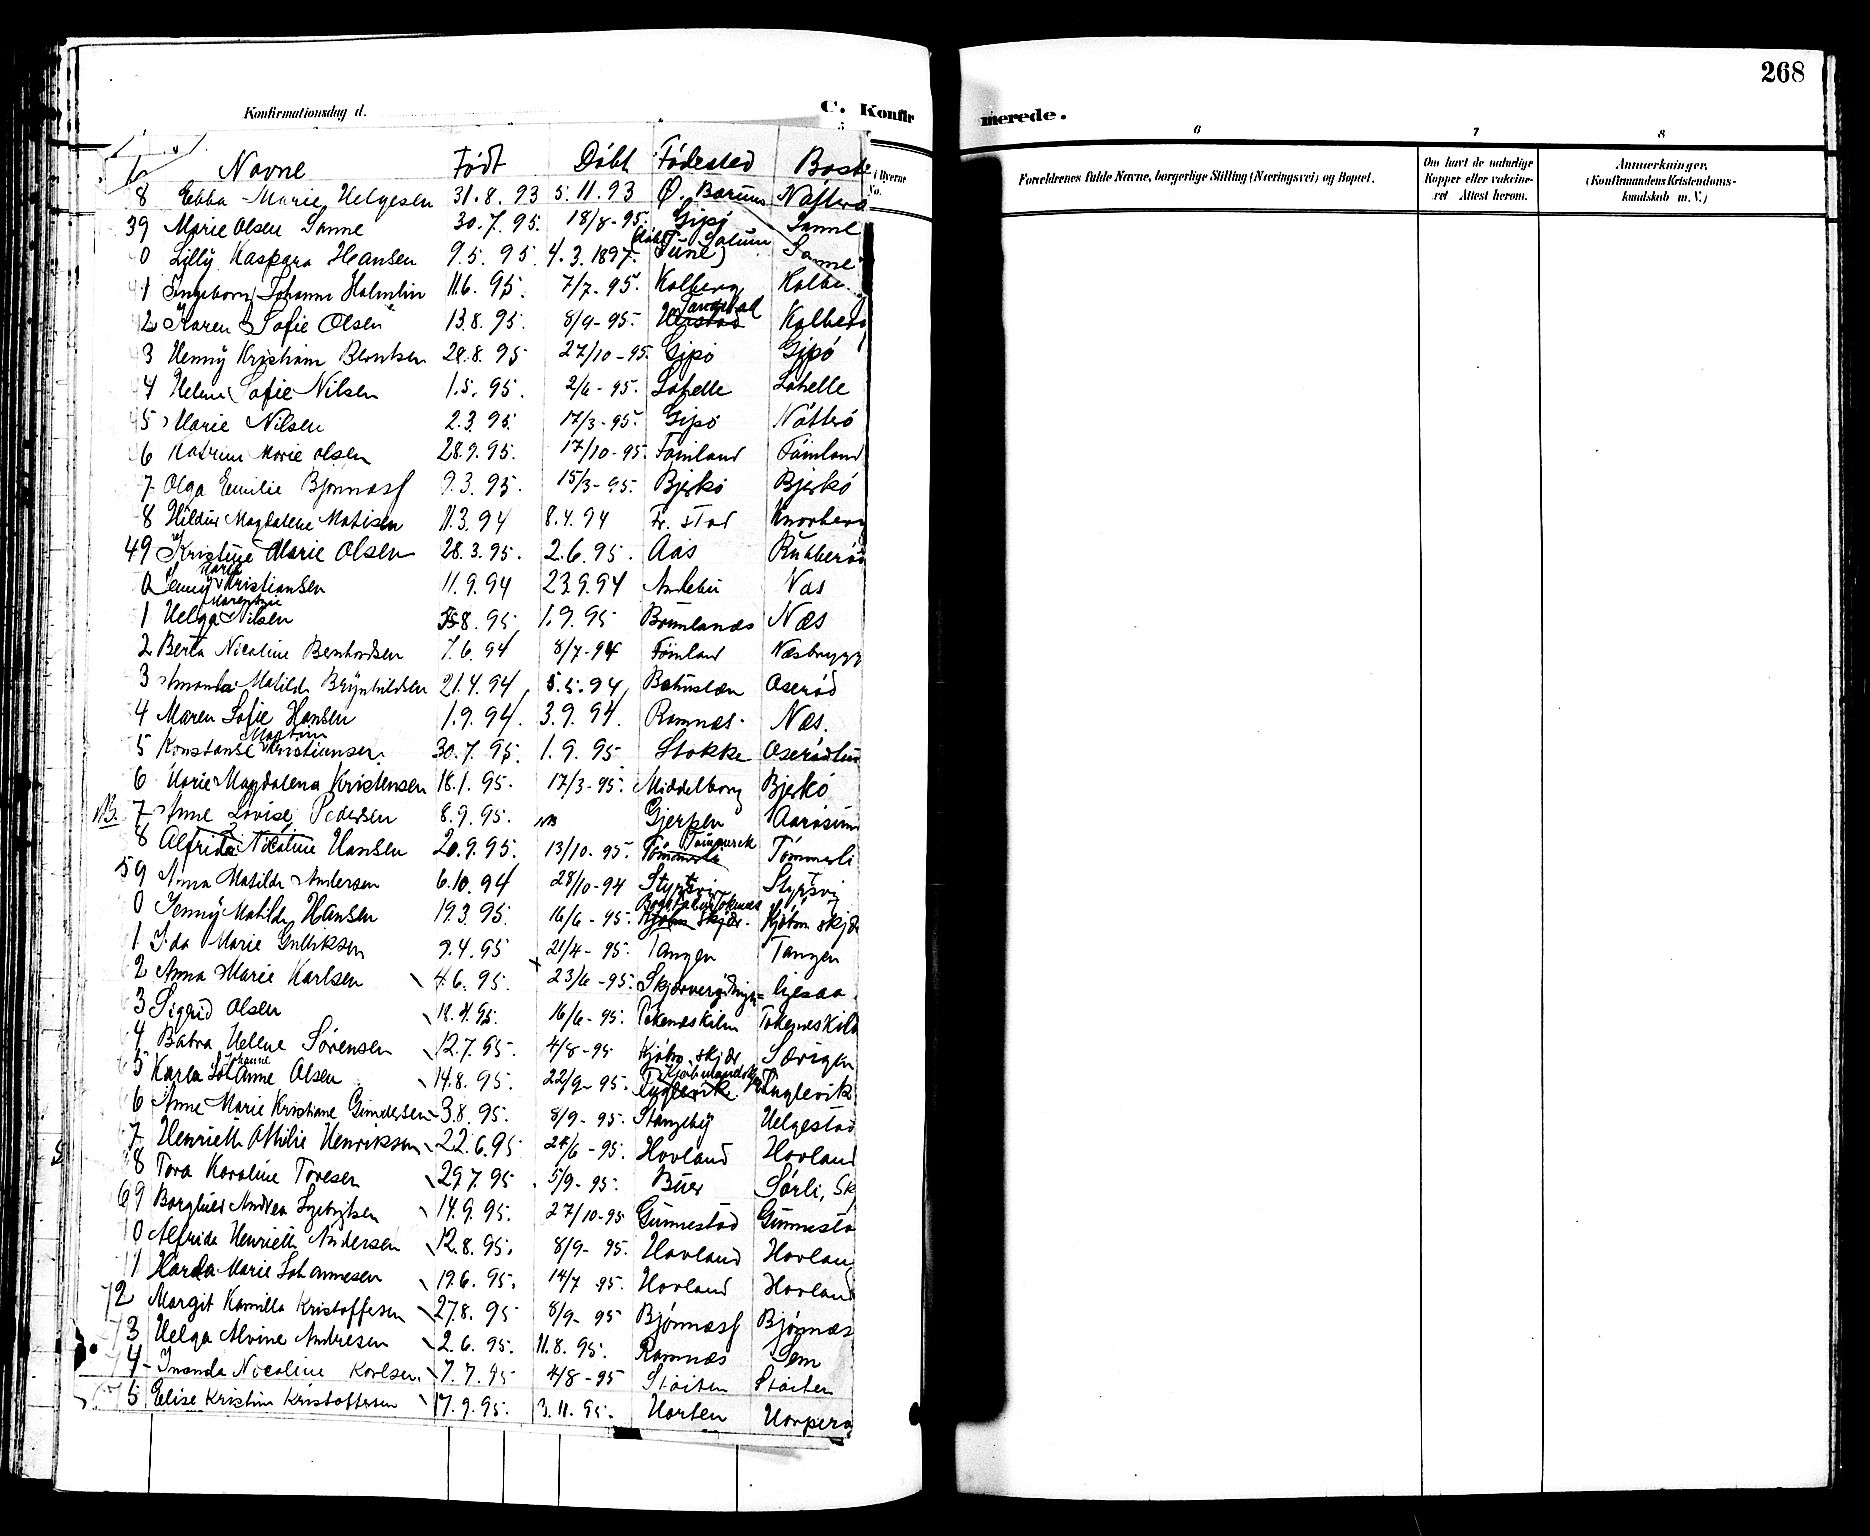 268
Konfirmationsdag d.
C. Konfir
merede.
5
6
7
8
i Byerne
No.
Forældrenes fulde Navne, borgerlige Stilling (Næringsvei) og Bopæl.
Om havt de naturlige
Kopper eller vakcine-
ret Attest herom.
Anmærkninger.
(Konfirmandens Kristendoms-
kundskab m. V.)
Navne Født Døbt Fødested Bost
8 Ebba Marie Helgesen 31.8.93 5.11.93 Ø. Barum Nøtterø
39 Marie Olsen Sanne 30.7.95. 18/8-95. Gipø Sanne
0 Lilly Kaspara Hansen 9.5.95 4.3.1897. Tune Sanne
1 Ingeborg Johanne Holmlin 11.6.95. 7/7-95. Kolberg Kolbe
2 Karen Sofie Olsen 13.8.95. 8/9-95. Kolberg
3 Henny Kristiane Berntsen 28.8.95 27/10-95. Gipø Gipø
4 Helene Sofie Nilsen 1.5.95. 2/6-95. Løkelle Løkelle
45 Marie Nilsen 2.3.95. 17/3-95. Gipø Nøtterø
6 Katrine Marie Olsen 28.9.95. 17/10-95. Føinland Føinland
7 Olga Emilie Bjønnæsf 9.3.95. 15/3-95. Bjerkø Bjerkø
8 Hildur Magdalene Matisen 11.3.94 8.4.94 Fr. stad
49 Kristine Marie Olsen 28.3.95. 2.6.95. Aas
0 Jenny Marie Kristiansen 11.9.94 23.9.94 Andebu Næs
1 Helga Nilsen 8.95 1.9.95 Brunlanæs Næs
2 Berta Nicoline Bernhardsen 7.6.94 8/7-94 Føinland Næsbrygg
3 Amanda Matilde Brynhildsen 21.4.94, 5.5.94, Oserød
4 Maren Sofie Hansen 1.9.94. 3.9.94. Ramnæs. Næs.
5 Konstanse Kristiansen. 30.7.95. 1.9.95 Stokke
6 Marie Magdalena Kristensen 18.1.95. 17/3-95. Middelborg Bjerkø
NB. 7 Anne Lovise Pedersen 8.9.95. NB Gjerpen Aarøsund
8 Alfrida Nicoline Hansen 20.9.95. 13/10-95. Tømmerli
59 Anna Matilde Andersen 6.10.94 28/10-94
0 Jenny Matilde Hansen 19.3.95. 16/6-95. Kjøbm skjær
1 Ida Marie Gulliksen 9.4.95 21/4-95. Tangen Tangen
2 Anna Marie Karlsen 4.6.95. 23/6-95.
3 Sigrid Olsen 18.4.95. 16/6-95. Tokenæskiln Tokenæskiln
4 Babra Helene Sørensen 12.7.95. 4/8-95 Kjøbm. skjær
5 Karla Johanne Olsen 14.8.95. 22/9-95. Fuglevik Fuglevik
6 Anne Marie Kristiane Gundersen 3.8.95. 8/9-95. Stangeby Helgestad
7 Henriette Ottilie Henriksen 22.6.95 24/6-95. Hovland Hovland
8 Tora Karoline Toresen 29.7.95 5/9-95. Buer Sørli, Sk
69 Borghild Andrea Syebytsen 14.9.95. 27/10-95 Gunnestad Gunnesta
0 Alfrida Henriette Andersen 12.8.95. 8/9-95. Hovland Hovlan
1 Harda Marie Johannesen 19.6.95. 14/7 95. Hovland Hovland
72 Margit Kamilla Kristoffersen 27.8.95 8/9-95 Bjønnæsf Bjønnæs
73 Helga Alvine Andresen 2.6.95. 11.8.95. Ramnæs Sem
4 Inanda Nicoline Karlsen. 7.7.95 4/8-95 Støiten Støiten
5 Elise Kristine Kristoffersen 17.9.95. 3.11.95. Horten